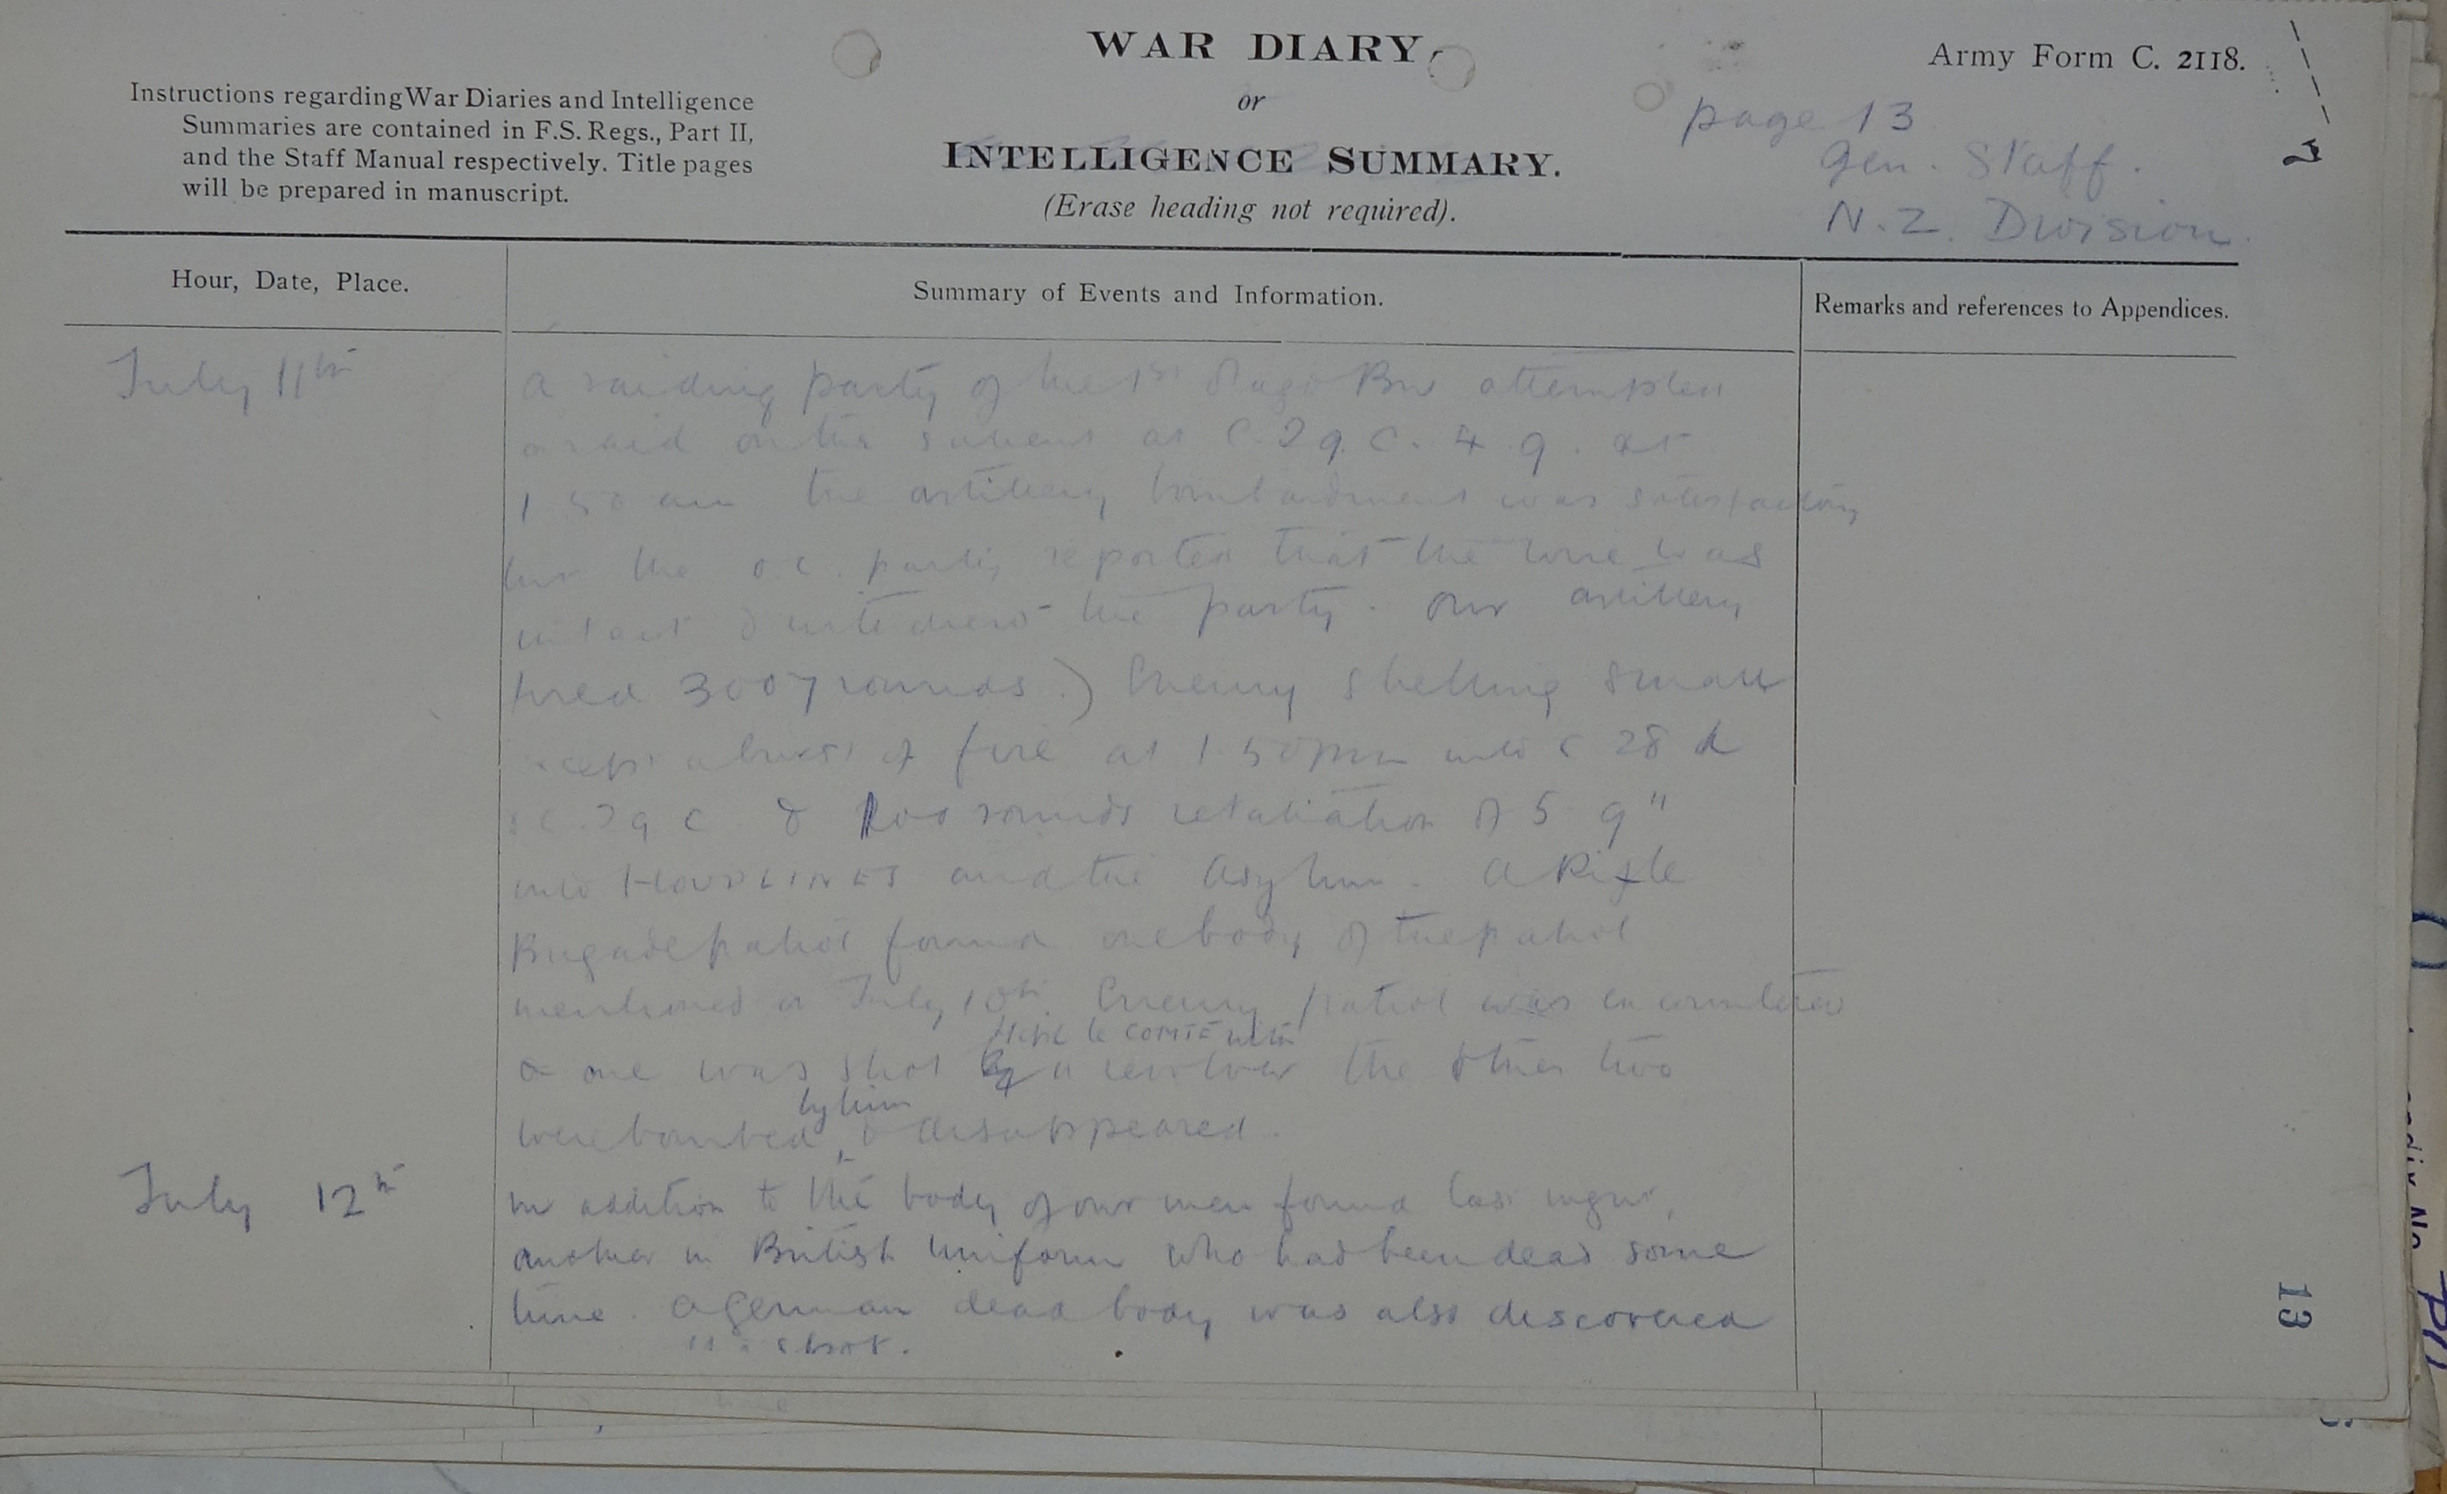 WAR DIARY
or
INTELLIGENCE SUMMARY.
(Erase heading not required).
Army Form C. 2118.
Instructions regarding War Diaries and Intelligence
Summaries are contained in F.S. Regs., Part II,
and the Staff Manual respectively. Title pages
will be prepared in manuscript.
page 13
Gen. Staff.
N.Z. Division.
Hour, Date, Place.
Summary of Events and Information.
Remarks and references to Appendices.
July 11th
A raiding party of the 1st Otago Bn attempted
a raid on the salient at C.29.C.4.9. at
1.50 am the artillery bombardment was satisfactory
but the O.C. party reported that the wire was
intact & withdrew the party. Our artillery
fired 3007 rounds.) Enemy shelling small
except a burst of fire at 1.50 pm into C 28 d
& C.29 C & 100 rounds retaliation of 5.9"
into HOUPLINES and the Asylum. A Rifle
Brigade patrol found one body of the patrol
mentioned on July 10th. Enemy patrol was encountered
& one was shot by le COMTE with a revolver the other two
were bombed by him & disappeared.
July 12th
In addition to the body of our men found last night,
another in British uniform who had been dead some
time. A German dead body was also discovered
shot.
13